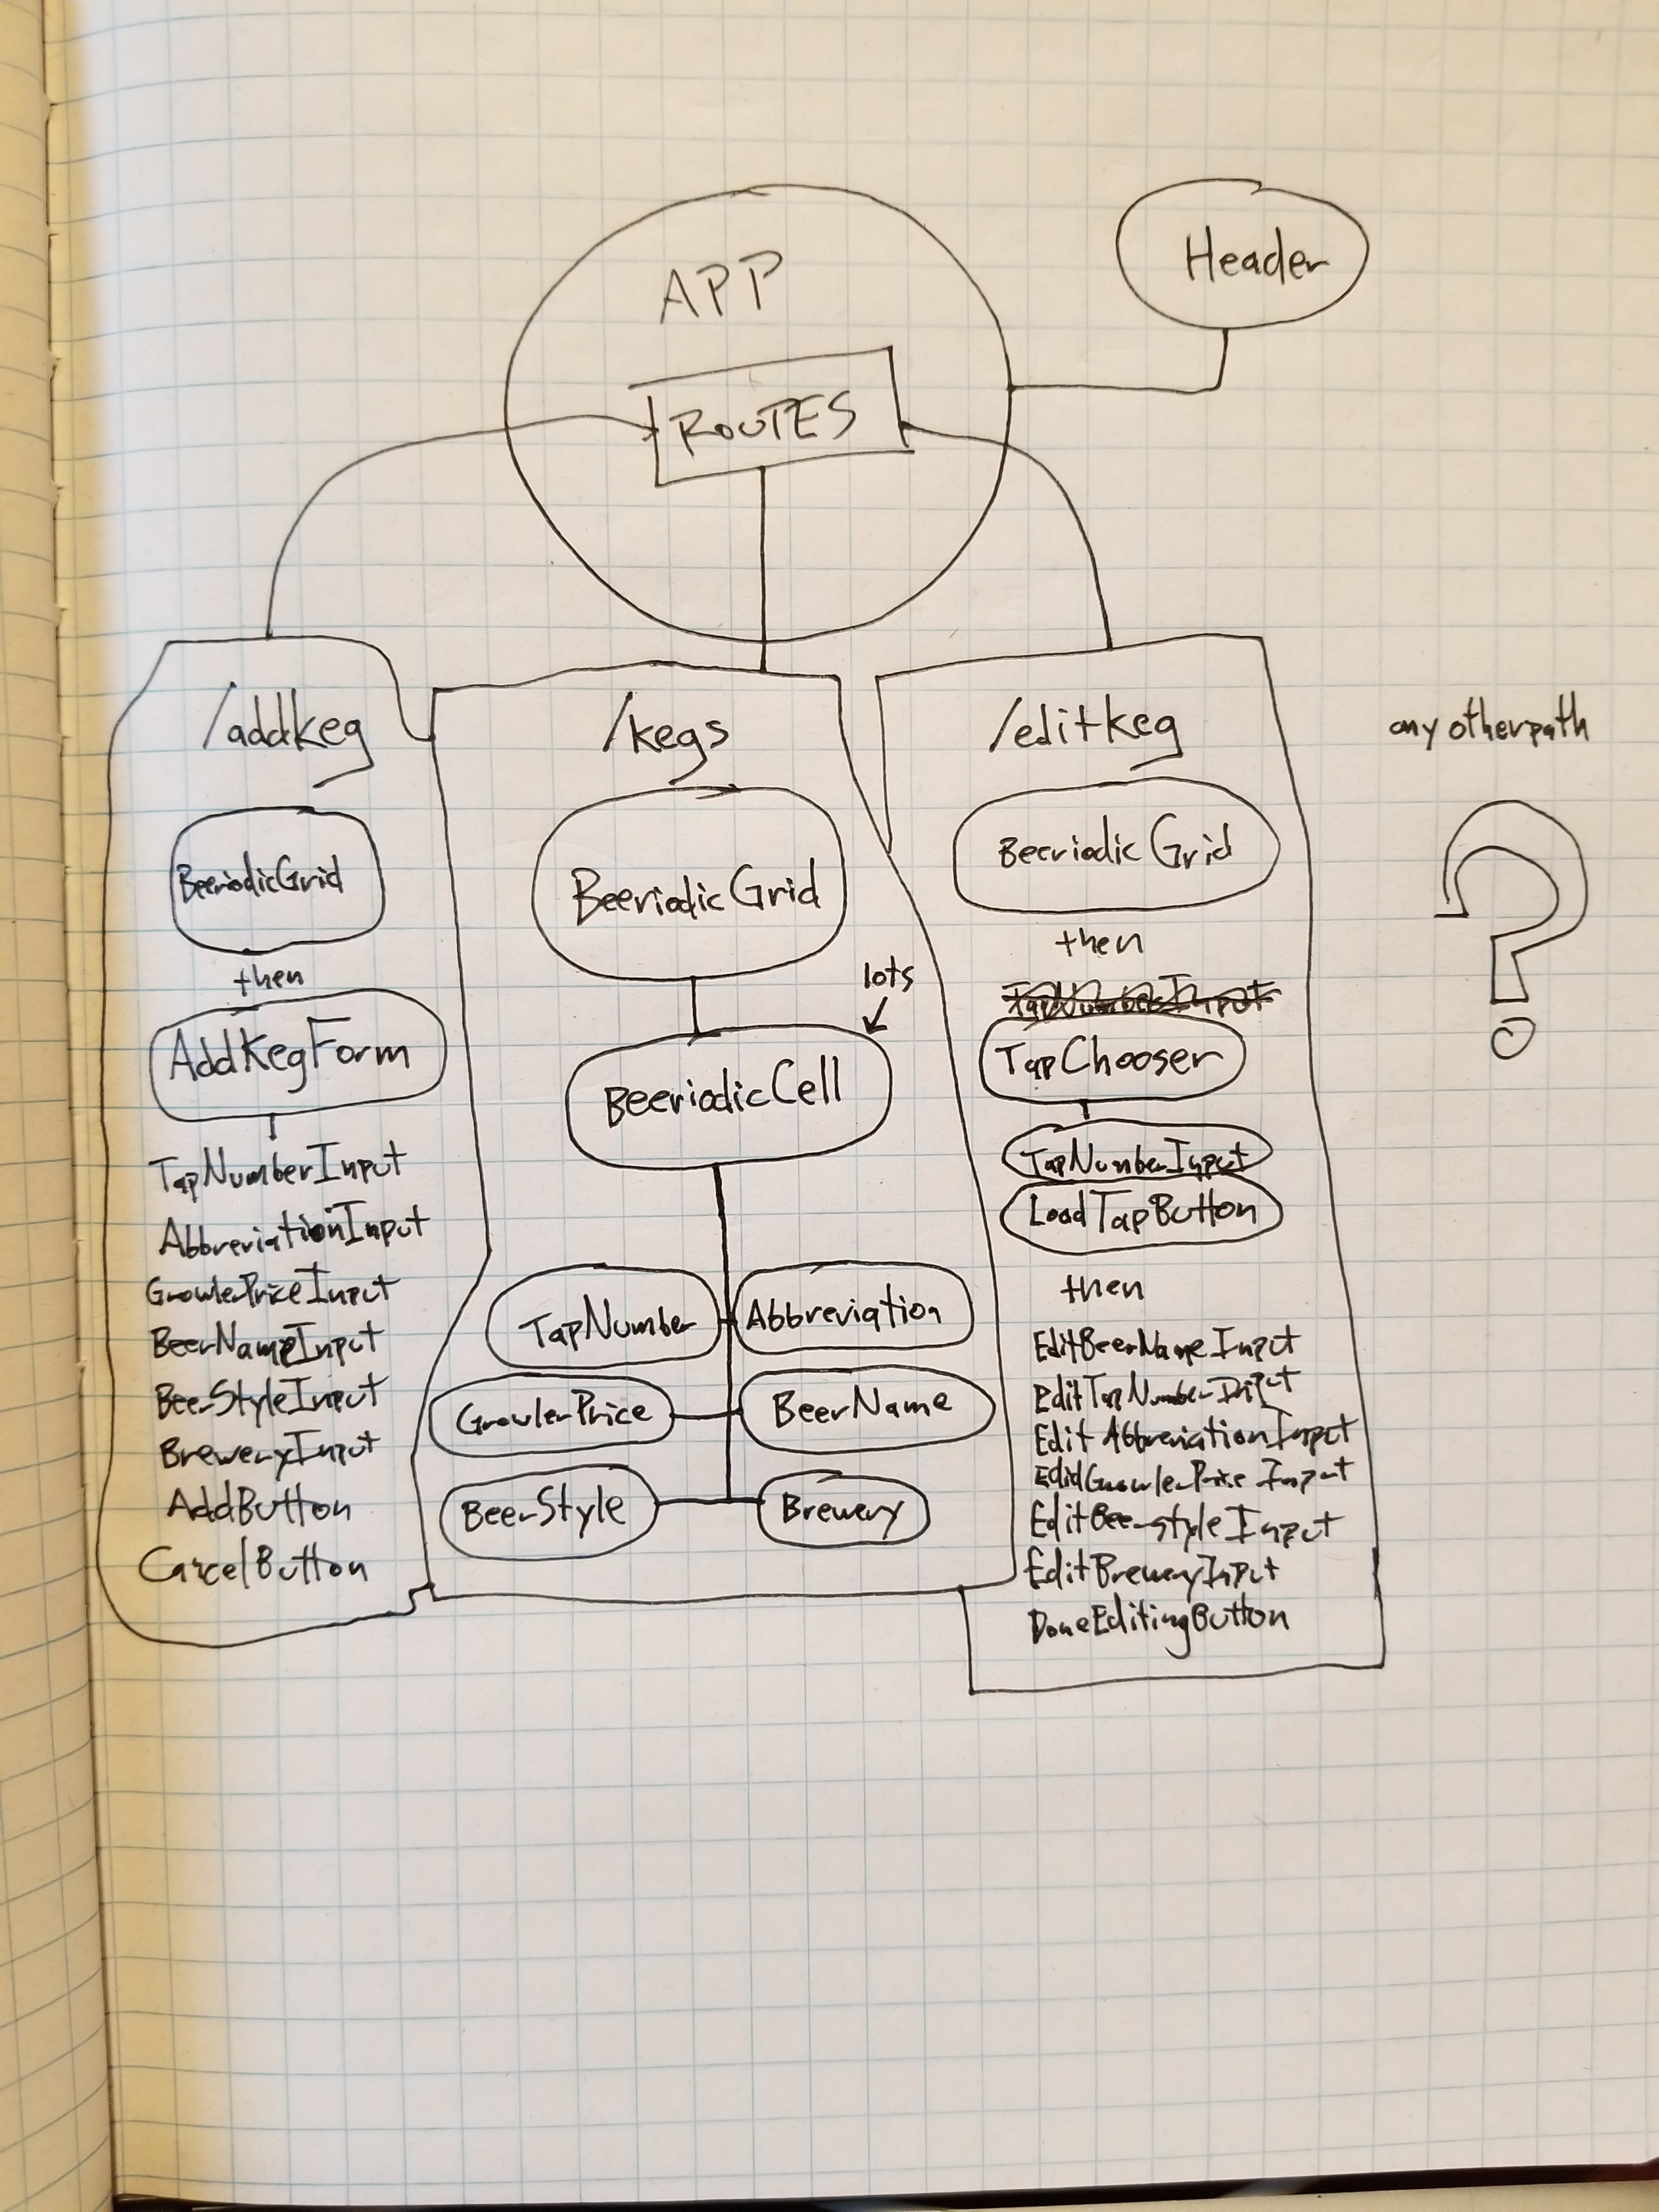 APP
Header
ROUTES
/addkeg
BeeriodicGrid
then
AddKegForm
TapNumberInput
AbbreviationInput
GrowlerPriceInput
BeerNameInput
BeerStyleInput
BreweryInput
AddButton
CancelButton
/kegs
BeeriodicGrid
lots
BeeriodicCell
TapNumber
Abbreviation
GrowlerPrice
BeerName
BeerStyle
Brewery
/editkeg
Beeriodic Grid
then
TapNumberInput
TapChooser
TapNumberInput
LoadTapButton
then
EditBeerNameInput
EditTapNumberInput
EditAbbreviationInput
EdidGrowlerPriceInput
EditBeerstyleInput
EditBreweryInput
DoneEditingButton
any other path
?